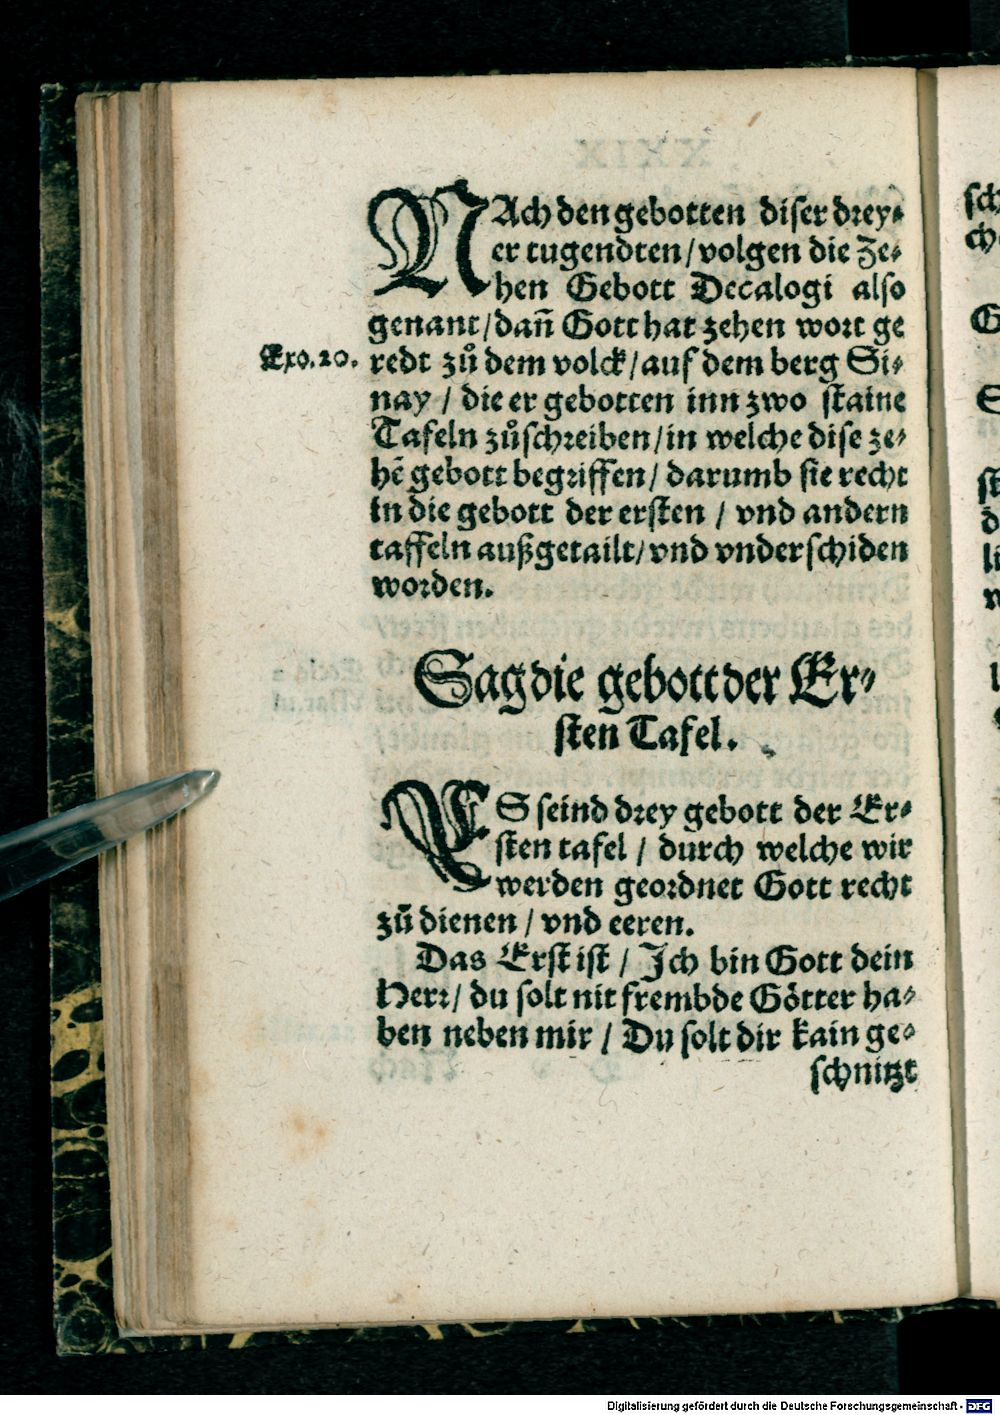 NAch den gebotten diser drey-
er tugendten / volgen die Ze-
hen Gebott Decalogi also
genant / dañ Gott hat zehen wort ge
Exo. 20. redt zů dem volck / auf dem berg Si-
nay / die er gebotten inn zwo staine
Tafeln zůschreiben / in welche dise ze-
hẽ gebott begriffen / darumb sie recht
in die gebott der ersten / vnd andern
taffeln außgetailt / vnd vnderschiden
worden.
Sag die gebott der Er-
sten Tafel.
ES seind drey gebott der Er-
sten tafel / durch welche wir
werden geordnet Gott recht
zů dienen / vnd eeren.
Das Erst ist / Ich bin Gott dein
Herr / du solt nit frembde Götter ha-
ben neben mir / Du solt dir kain ge-
schnitzt
Digitalisierung gefördert durch die Deutsche Forschungsgemeinschaft - DFG